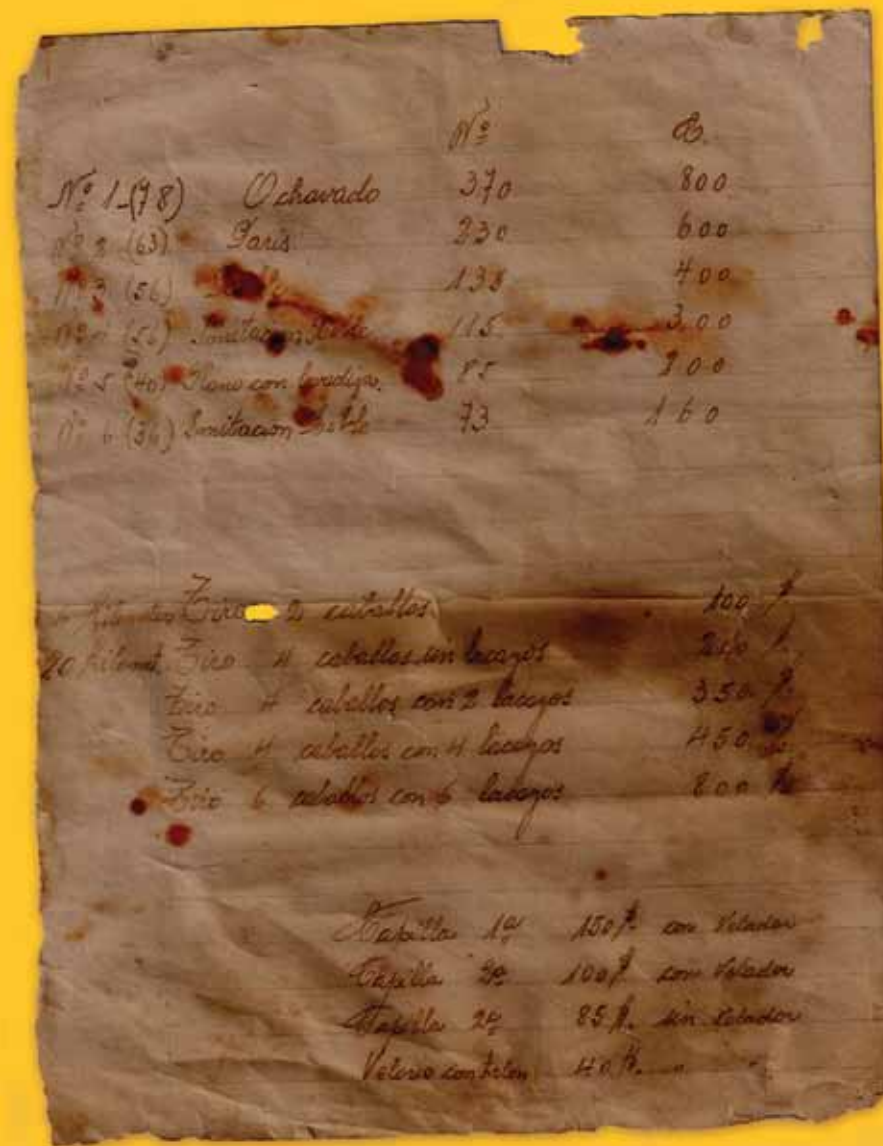 Nº
Nº 1-(78) Ochavado 370 800
Nº 2 (63) Paris 230 600
Nº 3 (56) 135 400
(56) Imitacion 115 300
Nº 5 (40) Plano con 85 200
Nº 6 (36) Imitacion 73 160
Tiro 2 caballos 100 p.
20 kilomt. Tiro 4 caballos sin lacayos p.
Tiro 4 caballos con 2 lacayos 350 p.
Tiro 4 caballos con 4 lacayos 450
Tiro 6 caballos con 6 lacayos 800 p.
Capilla 1ª 150 p. con Velador
Capilla 2ª 100 p. con Velador
Capilla 2ª 85 p. sin Velador
Velorio con 40 p. " "